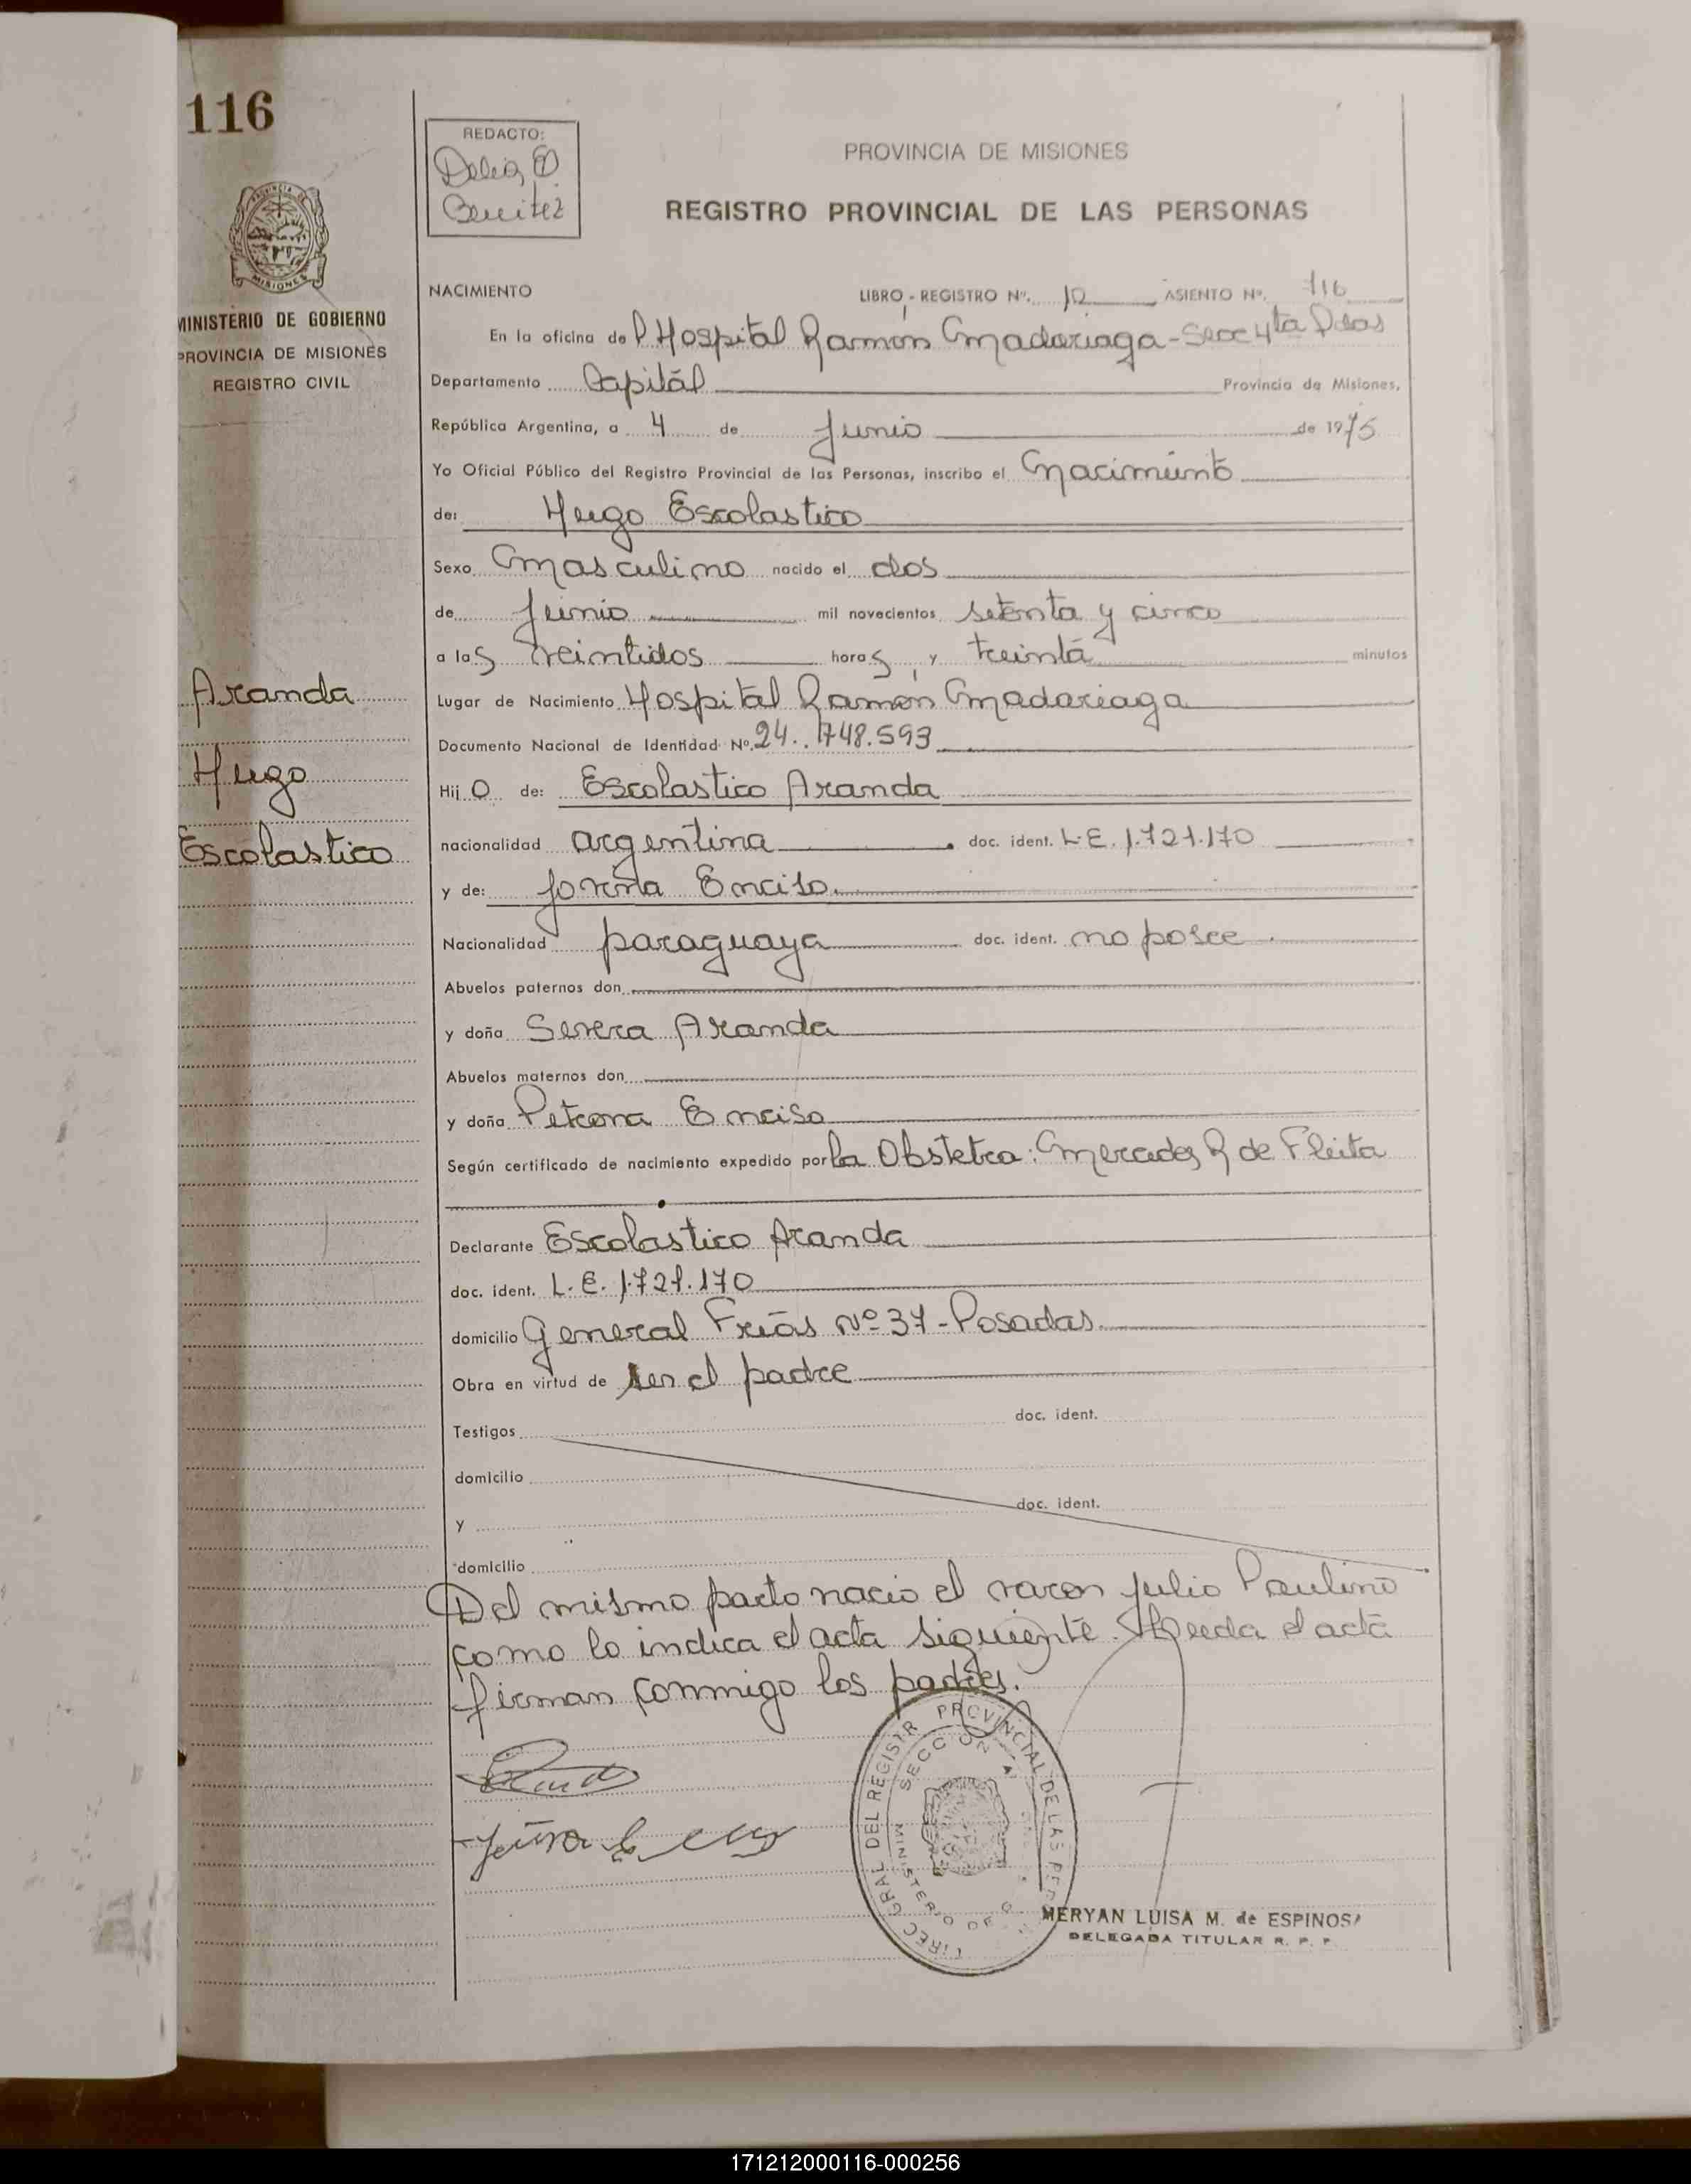 116
REDACTO:
Delia E
Benitez
PROVINCIA DE MISIONES
REGISTRO PROVINCIAL DE LAS PERSONAS
MISIONES
MINISTERIO DE GOBIERNO
PROVINCIA DE MISIONES
REGISTRO CIVIL
NACIMIENTO LIBRO - REGISTRO Nº. 10 ASIENTO Nº. 116
En la oficina de Hospital Ramón Madariaga - Secc 4ta Pdas
Departamento Capitál Provincia de Misiones,
República Argentina, a 4 de Junio de 1975
Yo Oficial Público del Registro Provincial de las Personas, inscribo el nacimiento
de: Hugo Escolastico
Sexo Masculino nacido el dos
de Junio mil novecientos setenta y cinco
a las veintidos horas y treinta minutos
Aranda
Hugo
Escolastico
Lugar de Nacimiento Hospital Ramón Madariaga
Documento Nacional de Identidad Nº. 24.748.593
Hijo de: Escolastico Aranda
nacionalidad argentina doc. ident. L.E. 1.721.170
y de: Enciso
Nacionalidad paraguaya doc. ident. no posee
Abuelos paternos don
y doña Severa Aranda
Abuelos maternos don
y doña Petrona Enciso
Según certificado de nacimiento expedido por la Obstetra: Mercedes R de Fleita
Declarante Escolastico Aranda
doc. ident. L.E. 1.721.170
domicilio General Frías Nº 37 - Posadas
Obra en virtud de ser el padre
Testigos doc. ident.
domicilio
y doc. ident.
domicilio
Del mismo parto nacio el varon Julio Paulino
como lo indica el acta siguiente. Leida el acta
firman conmigo los padres.
DIREC GRAL DEL REGISTR PROVINCIAL DE LAS PER
SECCION
MINISTERIO DE G
MERYAN LUISA M. de ESPINOSA
DELEGADA TITULAR R. P. P.
171212000116-000256